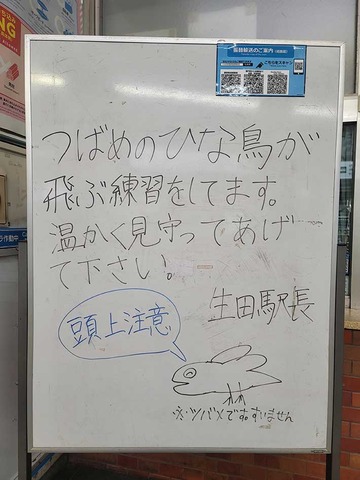 つばめのひな鳥が
飛ぶ練習をしてます。
温かく見守ってあげ
て下さい。
生田駅長
頭上注意
※ツバメです。すいません
振替輸送のご案内